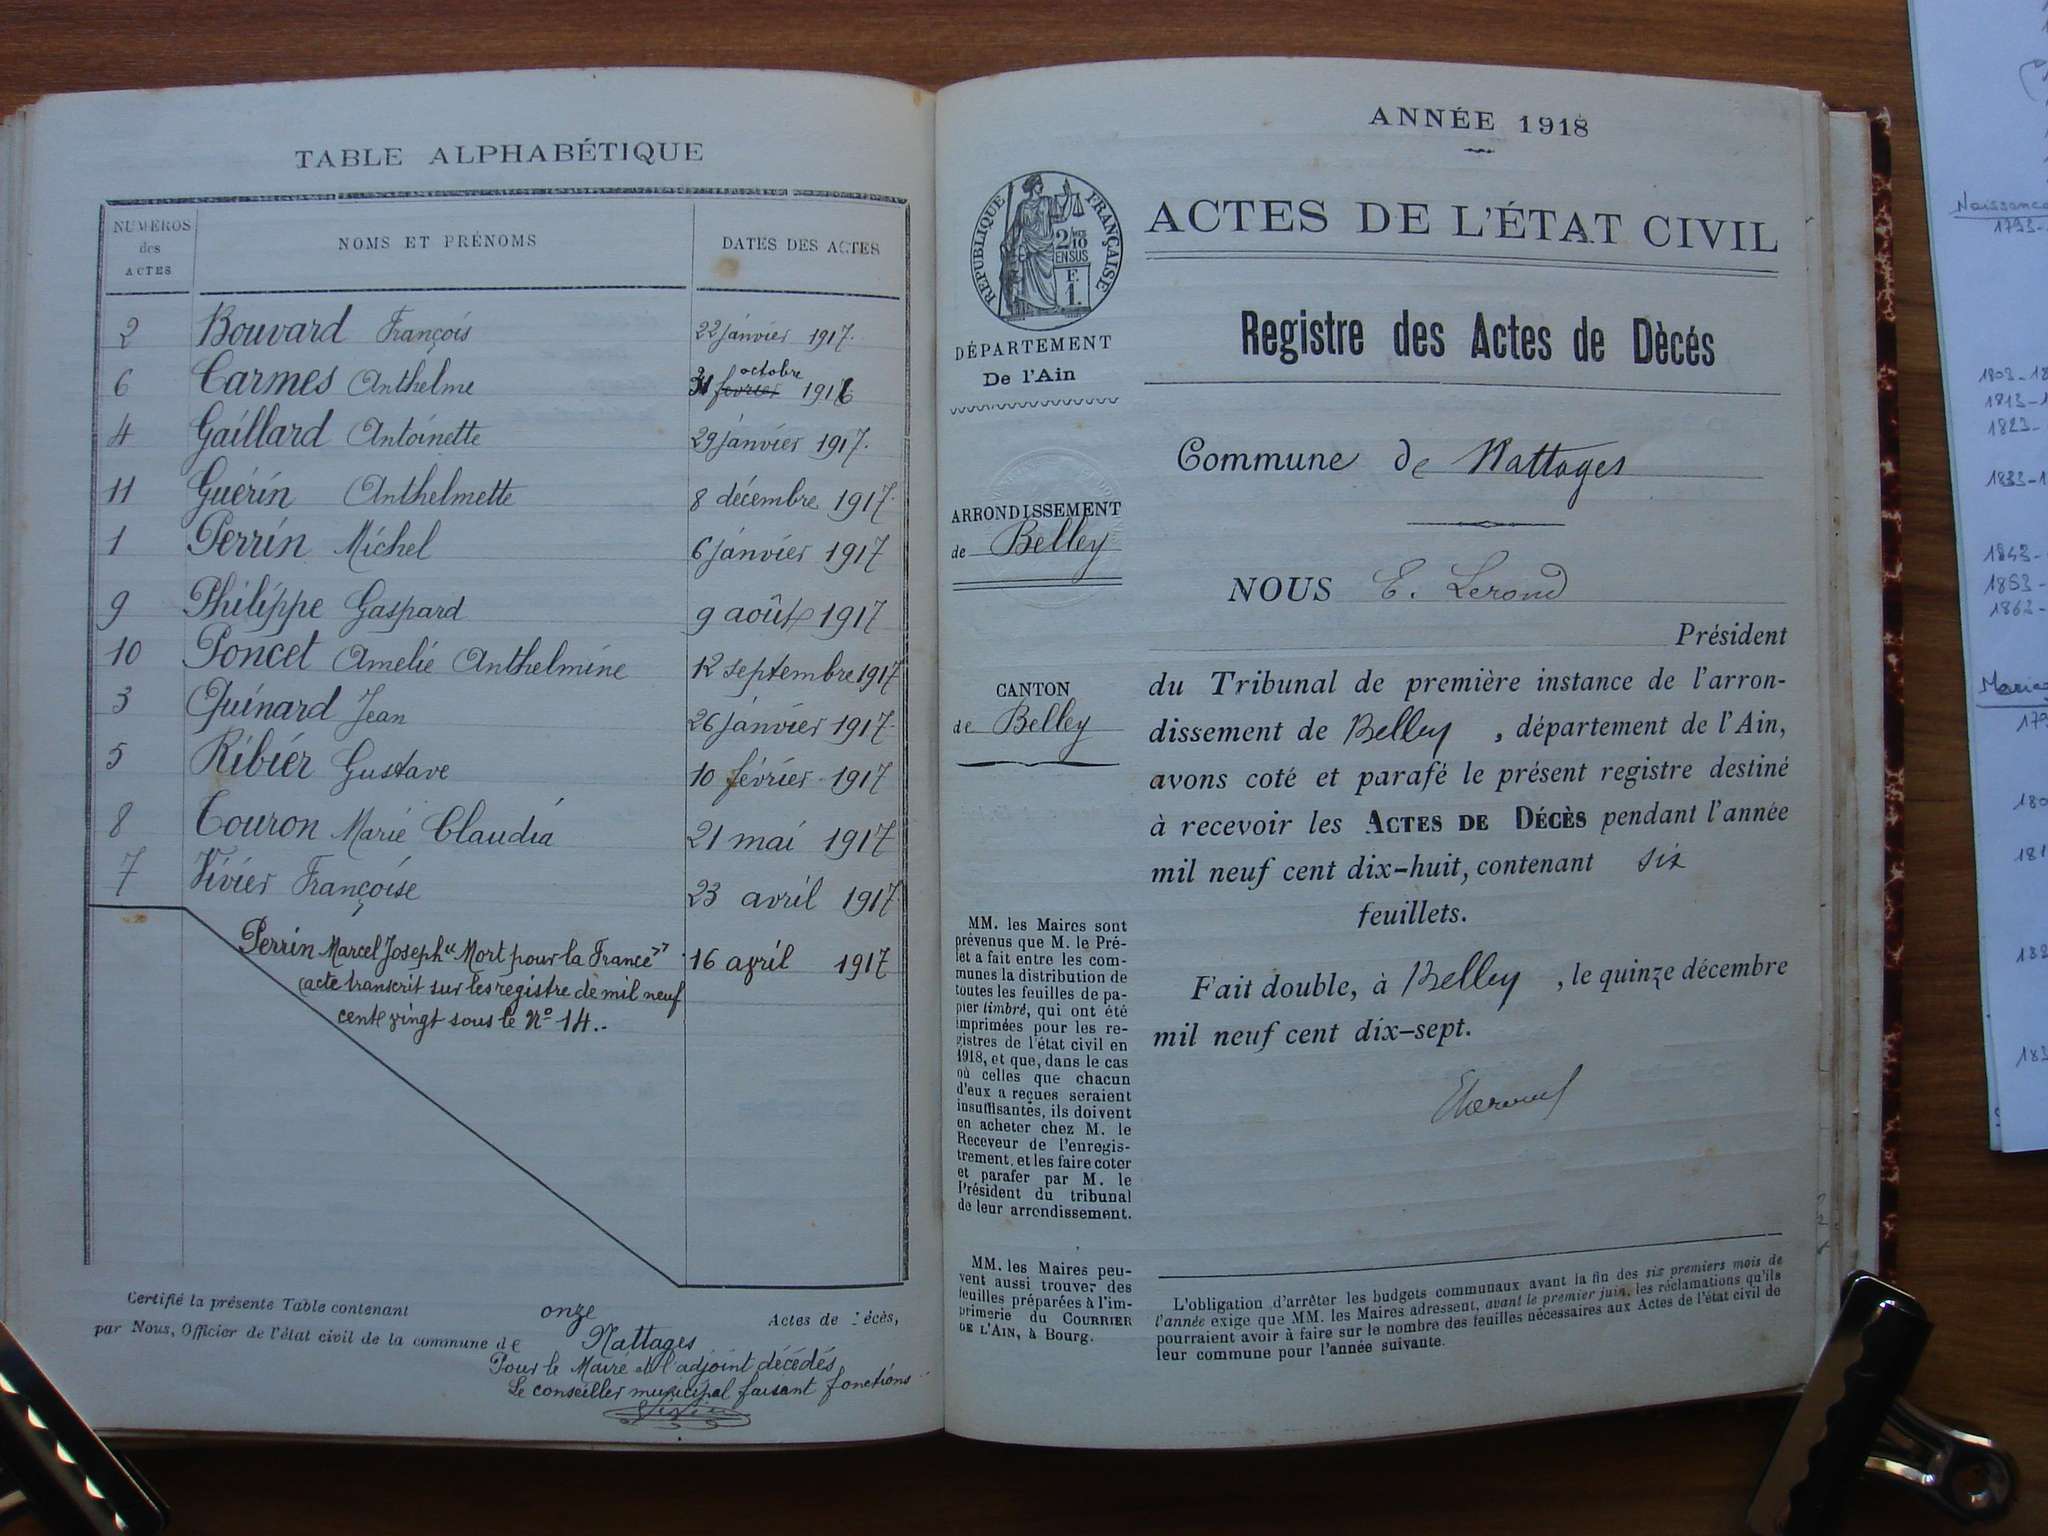 TABLE ALPHABÉTIQUE
NUMÉROS des ACTES
NOMS ET PRÉNOMS
DATES DES ACTES
2 Bouvard François 22 janvier 1917.
6 Carmes Anthelme 31 octobre 1916
4 Gaillard Antoinette 29 janvier 1917.
11 Guérin Anthelmette 8 décembre 1917.
1 Perrin Michel 6 janvier 1917
9 Philippe Gaspard 9 août 1917
10 Poncet Amelie Anthelmine 12 septembre 1917
3 Quinard Jean 26 janvier 1917.
5 Ribier Gustave 10 février 1917
8 Touron Marie Claudia 21 mai 1917
7 Vivier Françoise 23 avril 1917
Perrin Marcel Joseph "Mort pour la France" 16 avril 1917
(acte transcrit sur les registre de mil neuf
cent vingt sous le No 14..
Certifié la présente Table contenant onze Actes de Décès,
par Nous, Officier de l'état civil de la commune de Nattages
Pour le Maire et l'adjoint décédés
Le conseiller municipal faisant fonctions
ANNÉE 1918
RÉPUBLIQUE FRANÇAISE
2/10
EN SUS
F.
1.
ACTES DE L'ÉTAT CIVIL
Registre des Actes de Dècés
DÉPARTEMENT
De l'Ain
ARRONDISSEMENT
de Belley
CANTON
de Belley
MM. les Maires sont
prévenus que M. le Pré-
fet a fait entre les com-
munes la distribution de
toutes les feuilles de pa-
pier timbré, qui ont été
imprimées pour les re-
gistres de l'état civil en
1918, et que, dans le cas
où celles que chacun
d'eux a reçues seraient
insuffisantes, ils doivent
en acheter chez M. le
Receveur de l'enregis-
trement, et les faire coter
et parafer par M. le
Président du tribunal
de leur arrondissement.
MM. les Maires peu-
vent aussi trouver des
feuilles préparées à l'im-
primerie du COURRIER
DE L'AIN, à Bourg.
Commune de Nattages
NOUS E. Lerond
Président
du Tribunal de première instance de l'arron-
dissement de Belley, département de l'Ain,
avons coté et parafé le présent registre destiné
à recevoir les ACTES DE DÉCÈS pendant l'année
mil neuf cent dix-huit, contenant six
feuillets.
Fait double, à Belley, le quinze décembre
mil neuf cent dix-sept.
L'obligation d'arrêter les budgets communaux avant la fin des six premiers mois de
l'année exige que MM. les Maires adressent, avant le premier juin, les réclamations qu'ils
pourraient avoir à faire sur le nombre des feuilles nécessaires aux Actes de l'état civil de
leur commune pour l'année suivante.
Naissance
1793-
1803-18
1813-1
1823-
1833-1
1843-
1853-
1862-
Maria
179
180
181
182
183